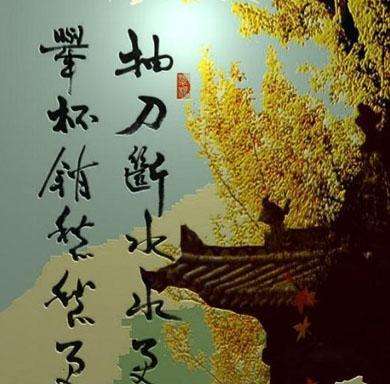 抽刀斷水水更
舉杯銷愁愁更